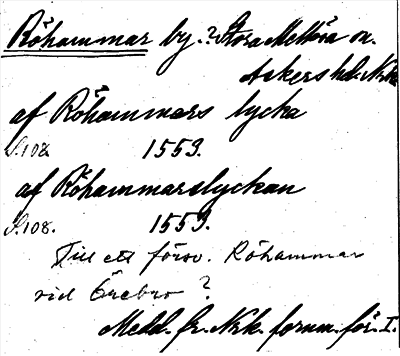 Röhammar by. ? Stora Mellösa sn.
Askers hd. Nrk.
af Röhammars lycka
S. 108. 1553.
af Röhammarslyckan
S. 108. 1553.
Till ett försv. Röhammar
vid Örebro ?
Medd. fr. Nrk. fornm. för. I.